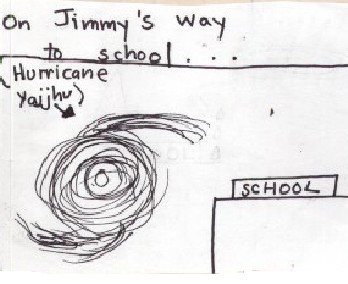 On Jimmy's way
to school...
(Hurricane
Yaijhu)
SCHOOL